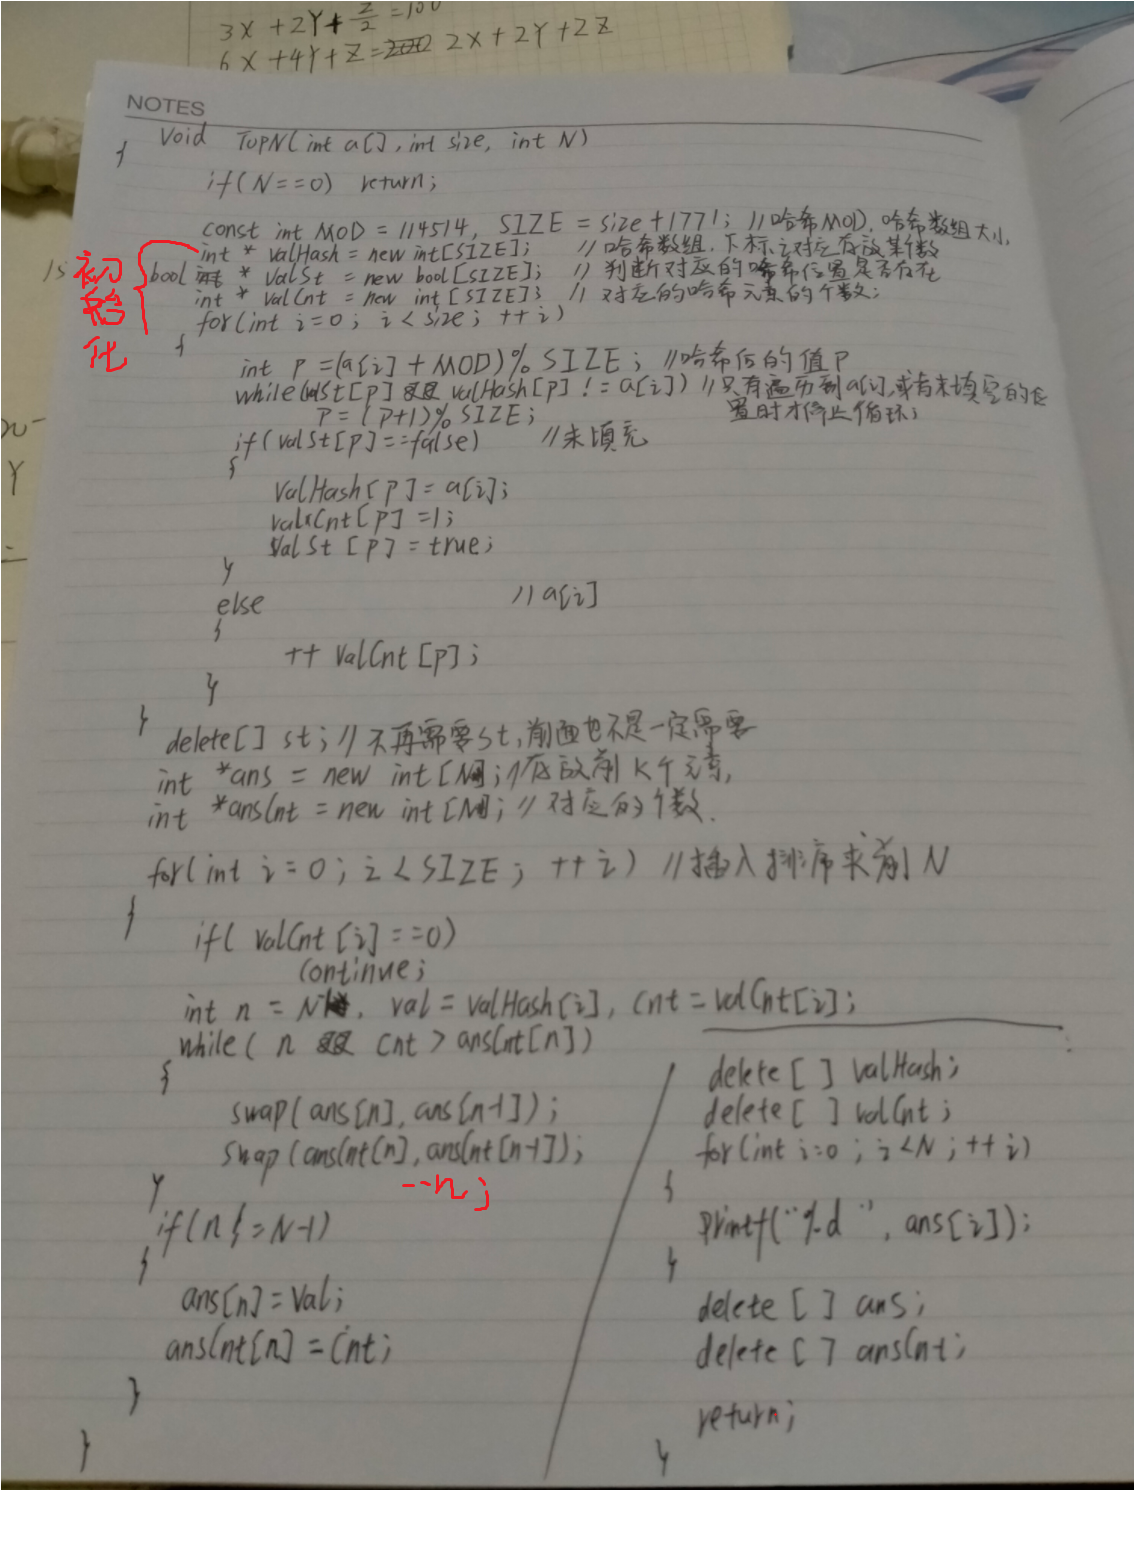 3X + 2Y + Z/2 = 100
6X + 4Y + Z = 200 2X + 2Y + 2Z
NOTES
void TopN(int a[], int size, int N)
{
if(N==0) return;
const int MOD = 114514, SIZE = size+1771; //哈希MOD,哈希数组大小,
int * valHash = new int[SIZE]; //哈希数组,下标i对应存放某个数
bool * valSt = new bool[SIZE]; //判断对应的哈希位置是否存在
int * valCnt = new int[SIZE]; //对应的哈希元素的个数;
初始化
for(int i=0; i<size; ++i)
{
int p =(a[i] + MOD)% SIZE; //哈希后的值P
while(valSt[p] && valHash[p] != a[i]) //只有遍历到a[i],或有未填空的位
p = (p+1)% SIZE; 置时才停止循环;
if(valSt[p]==false) //未填充
{
valHash[p]=a[i];
valCnt[p]=1;
valSt[p]=true;
}
else //a[i]
{
++ valCnt[p];
}
}
delete[] st; //不再需要st,前面也不是一定需要
int *ans = new int[N]; //存放前K个元素,
int *ansCnt = new int[N]; //对应的个数.
for(int i=0; i<SIZE; ++i) //插入排序求前N
{
if( valCnt[i]==0)
continue;
int n = N, val = valHash[i], cnt = valCnt[i];
while( n && cnt > ansCnt[n])
{
swap(ans[n], ans[n-1]);
swap(ansCnt[n], ansCnt[n-1]);
--n;
}
if(n != N-1)
{
ans[n]=val;
ansCnt[n]=cnt;
}
}
delete[ ] valHash;
delete[ ] valCnt;
for(int i=0; i<N; ++i)
{
printf("%d ", ans[i]);
}
delete[ ] ans;
delete[ ] ansCnt;
return;
}